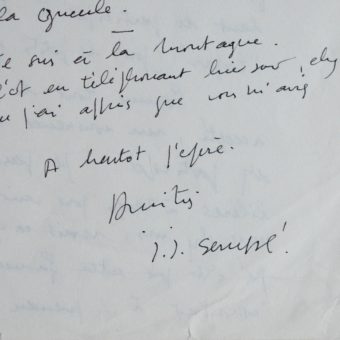 la gueule.
Je suis à la montagne.
C'est en téléphonant hier soir, chez
j'ai appris que vous m'avez
A bientôt j'espère.
Amitiés
J.J. Sempé.